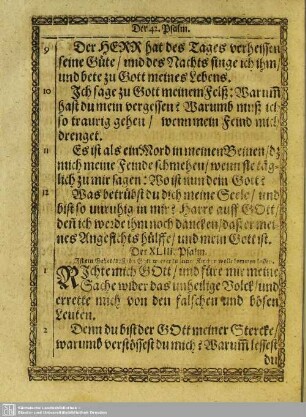 Der 42. Psalm.
9 Der HERR hat des Tages verheissen
seine Güte/ und des Nachts singe ich ihm/
und bete zu Gott meines Lebens.
10 Ich sage zu Gott meinem Felß: Warumb
hast du mein vergessen? Warumb muß ich
so traurig gehen/ wenn mein Feind mich
drenget.
11 Es ist als ein Mord in meinen Beinen/ dz
mich meine Feinde schmehen/ wenn sie täg-
lich zu mir sagen: Wo ist nun dein Gott?
12 Was betrübst du dich meine Seele/ und
bist so unruhig in mir? Harre auff GOtt/
denn ich werde ihm noch dancken/ daß er mei-
nes Angesichts hülffe/ und mein Gott ist.
Der XLIII. Psalm.
1 RIchte mich GOtt/ und füre mir meine
Sache wider das unheilige Volck/ und
errette mich von den falschen und bösen
Leuten.
2 Denn du bist der GOtt meiner Stercke/
warumb verstössest du mich? Warumb lessest
du